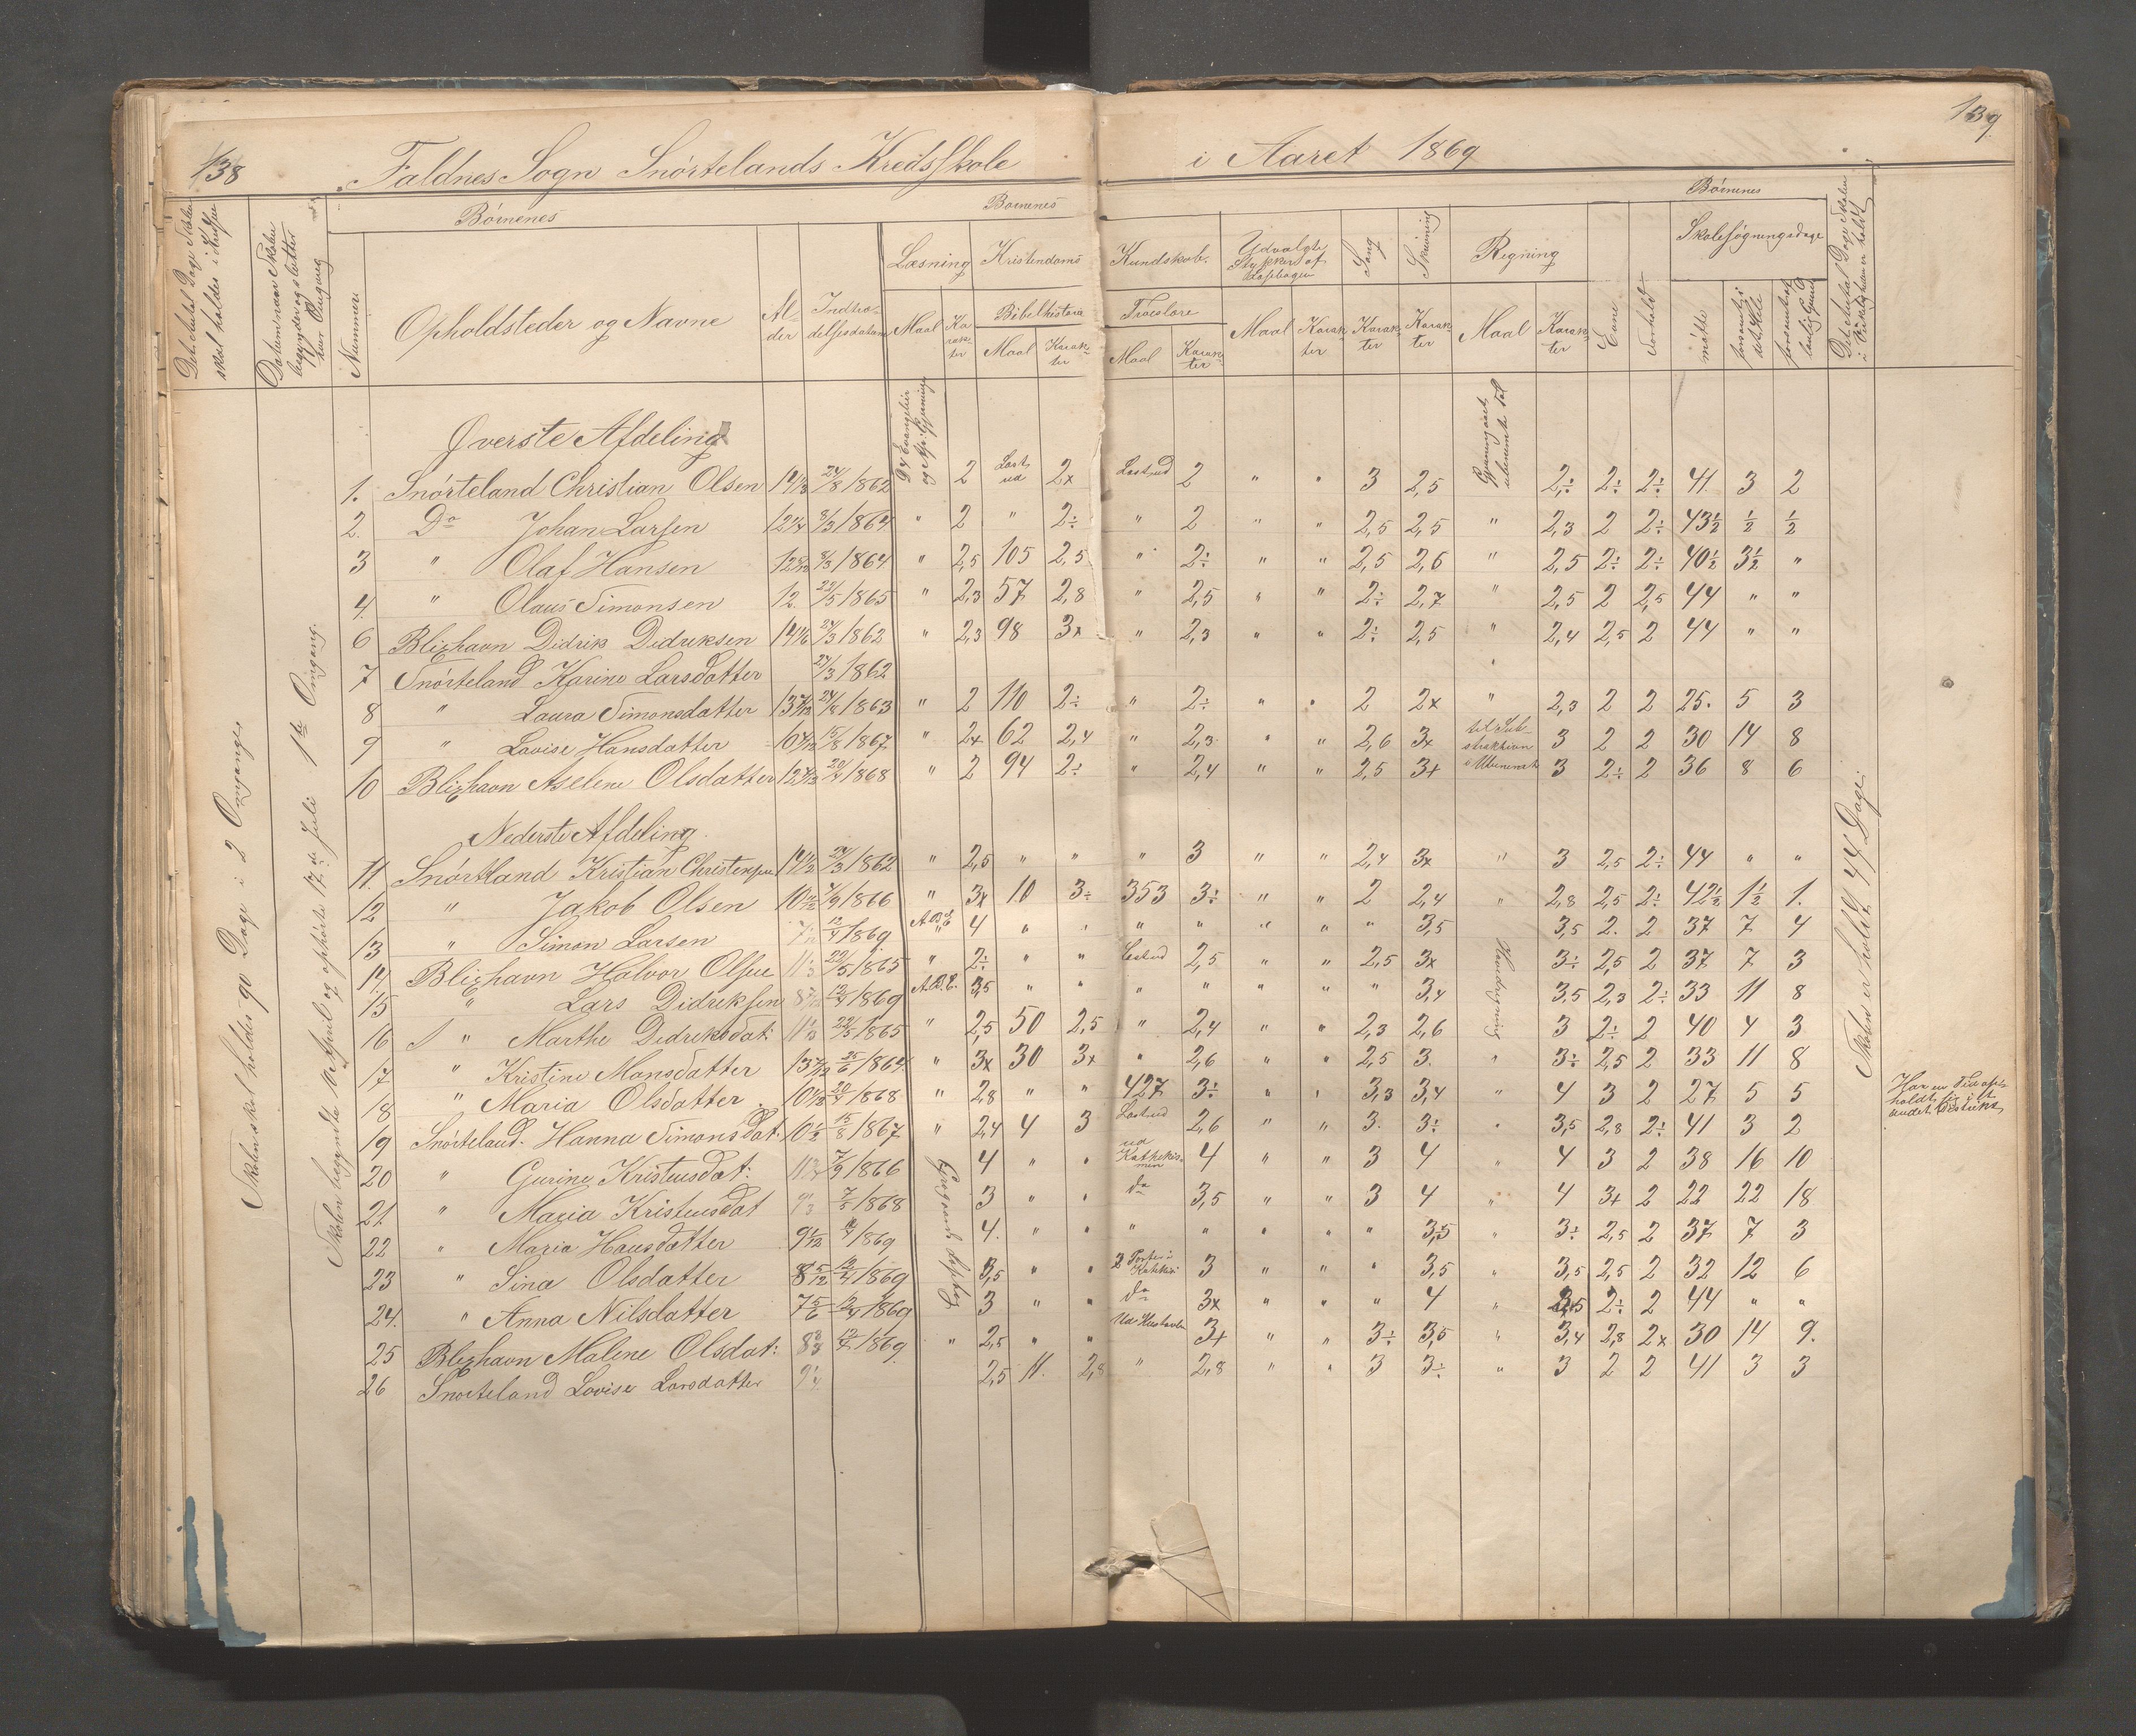 138
139.
Faldnes Sogn Snørtelands Kredsskole
i Aaret 1869
Det Antal Dage Skolen skal holdes i Kredsen
Datum naar Skolen begynder og slutter hver Omgang
Nummer
Børnenes
Børnenes
Børnenes
Opholdsteder og Navne
Alder
Indtrædelsesdatum
Læsning
Maal
Karakter
Kristendoms
Kundskab.
Bibelhistorie
Maal
Karakter
Troeslære
Maal
Karakter
Udvalgte Stykker af Læsebogen
Maal
Karakter
Sang
Karakter
Skrivning
Karakter
Regning
Maal
Karakter
Evne
Forhold
Skolesøgningsdage
mødte
forsømte i det Hele
forsømte uden lovlig Grund
Det Antal Dage Skolen i Virkeligheden er holdt
Skolen skal holdes 90 Dage i 2 Omgange
Skolen begyndte April og ophørte 17de Juli 1ste Omgang.
Skolen er holdt 44 Dage.
Øverste Afdeling
1. Snørteland Christian Olsen 14 1/3 24/8 1862 2 Læst ud 2x Læst ud 2 " " 3 2,5 2,÷ 2÷ 2÷ 41 3 2
2. Do Johan Larsen 12 1/4 8/3 1864 " 2 " 2÷ " 2 " " 2,5 2,5 " 2,3 2 2÷ 43½ ½ ½
3 " Olaf Hansen 8/3 1864 " 2,5 105 2,5 " 2÷ " " 2,5 2,6 " 2,5 2÷ 2÷ 40½ 3½ "
4. " Olaus Simonsen 12. 23/5 1865 " 2,3 57 2,8 " 2,5 " " 2÷ 2,7 " 2,5 2 2,5 44 " "
6 Blixhavn Didrik Didriksen 14 1/6 24/3 1862 " 2,3 98 3x " 2,3 " " 2÷ 2,5 " 2,4 2,5 2 44 " "
7 Snørteland Karine Larsdatter 24/3 1862
8 " Laura Simonsdatter 24/8 1863 " 2 110 2÷ " 2÷ " " 2 2x " 2,3 2 2 25. 5 3
9 " Lovise Hansdatter 15/8 1867 " 2x 62 2,4 " 2,3 " " 2,6 3x til Substraktion i Ubenævnte 3 2 2 30 14 8
10 Blixhavn Aselene Olsdatter 20/4 1868 " 2 94 2÷ " 2,4 " " 2,5 3+ 3 2÷ 2 36 8 6
Nederste Afdeling.
11. Snørtland Kristian Christensen 14 1/2 24/3 1862 " 2,5 " " " 3 " " 2,4 3x " 3 2,5 2÷ 44 " "
12 " Jakob Olsen 7/9 1866 " 3x 10 3÷ 353 3÷ " " 2 2,4 " 2,8 2,5 2÷ 42½ 1½ 1.
13 " Simon Larsen 12/4 1869 A.B.C 4 " " " " " " " 3,5 3,5 2. 2 37 7 4
14 Blixhavn Halvor Olsen 11 1/3 22/5 1865 " 2÷ " " Læst ud 2,5 " " 2,5 3x 3÷ 2,5 2 37 7 3
15 " Lars Didriksen 12/4 1869 A.B.C. 3,5 " " " " " " " 3,4 3,5 2,3 2÷ 33 11 8
16 " Marthe Didriksdat: 22/5 1865 " 2,5 50 2,5 " 2,4 " " 2,3 2,6 3 2÷ 2 40 4 3
17 " Kristine Monsdatter 25/6 1864 " 3x 30 3+ " 2,6 " " 2,5 3. " 3÷ 2,5 2 33 11 8
18 " Maria Olsdatter 20/4 1868 " 2,8 " " 427 3÷ " " 3,3 3,4 " 4 3 2 27 5 5
19 Snørteland. Hanna Simonsdat: 10 1/2 15/8 1867 " 2,4 4 3 Læst ud 2,6 " " 3. 3÷ " 3,5 2,8 2÷ 41 3 2
20 " Gurine Kristensdat: 7/9 1866 4 " " ud Kathekismen 4 " " 3 4 " 4 3 2 38 16 10
21 " Maria Kristensdat 7/5 1868 3 " " do 3,5 " " 3 4 " 4 3+ 2 22 22 18
22 " Maria Hansdatter 9 1/12 12/4 1869 4. " " " " " " " 3,5 " 3÷ 2,5 2 37 7 3
23 " Sina Olsdatter 8 5/12 12/4 1869 3,5 " " 2 Parter i Kathkis 3 " " " 3,5 " 3,5 2,5 2 32 12 6
24. " Anna Nilsdatter 7 5/6 12/4 1869 3 " " do 3x " " " 4 " 3,5 2÷ 2 44 " "
25 Blixhavn Malene Olsdat: 12/4 1869. " 2,5 " " Ud Hustavlen 3+ " " 3÷ 3,5 " 3,4 2,8 2x 30 14 9.
26 Snørteland Lovise Larsdatter 9 1/4 2,5 11. 2,8 " 2,8 " " 3 3÷ " 3 2 2 41 3 3
Har en Tid opholdt sig i et andet Distrikt